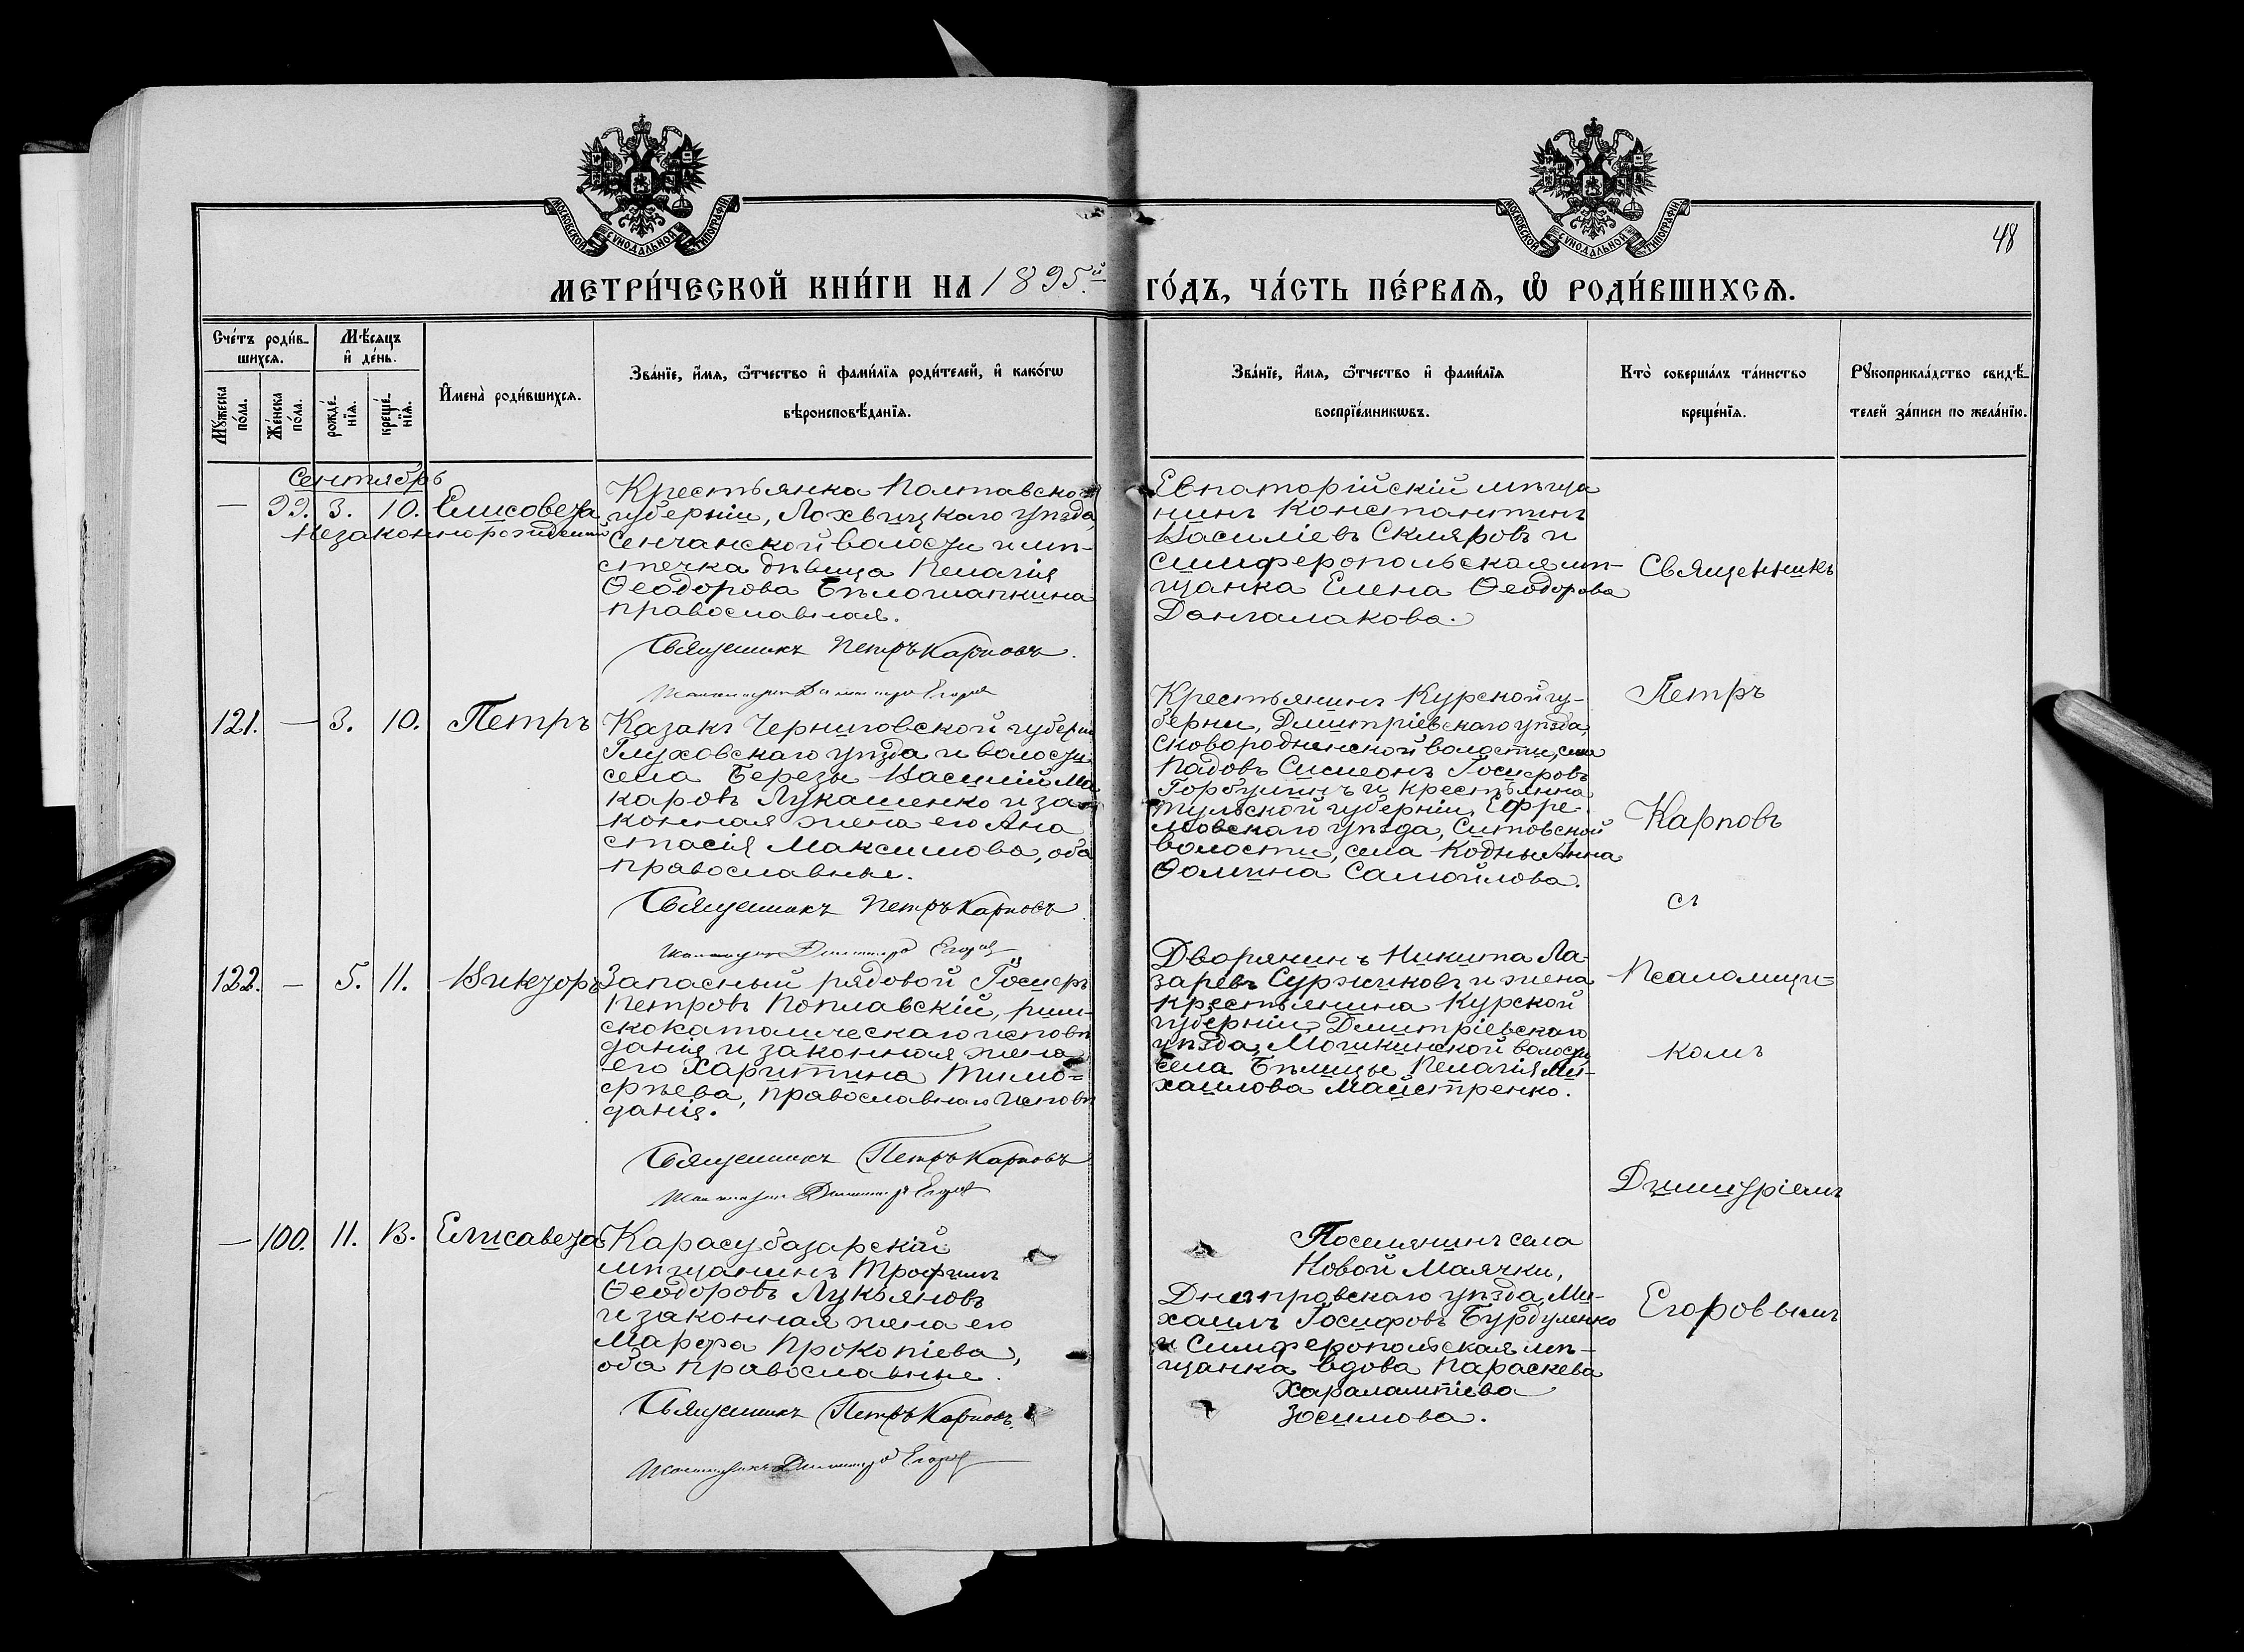 МОСКОВСКОЙ СУНОДАЛЬНОЙ ТИПОГРАФІИ
МОСКОВСКОЙ СУНОДАЛЬНОЙ ТИПОГРАФІИ
48
МЕТРИ́ЧЕСКОЙ КНИ́ГИ НА 1895.й ГО́ДЪ, ЧА́СТЬ ПЕ́РВАѦ, Ѡ РОДИ́ВШИХСѦ.
Сче́тъ роди́в-
шихсѧ.
Мѣ́сѧцъ
и҆ де́нь.
Мꙋ́жеска
по́ла.
Же́нска
по́ла.
рожде́-
нїѧ.
креще́-
нїѧ.
И҆мена̀ роди́вшихсѧ.
Зва́нїе, и҆́мѧ, ѻ҆́тчество и҆ фами́лїѧ роди́телей, и҆ како́гѡ
вѣроисповѣ́данїѧ.
Зва́нїе, и҆́мѧ, ѻ҆́тчество и҆ фами́лїѧ
воспрїе́мникѡвъ.
Кто̀ соверша́лъ та́инство
креще́нїѧ.
Рꙋкоприкла́дство свидѣ́-
телей за́писи по жела́нїю.
Сентябрь
— 99. 3. 10. Елисовета
Незаконнорожденный
Крестьянка Полтавской
губерніи, Лохвицкаго уѣзда,
Сенчанской волости и мѣ-
стечка дѣвица Пелагія
Ѳеодорова Бѣлошапкина
православная.
Священникъ Петръ Карповъ.
Евпаторійскій мѣща
нинъ Константинъ
Василіевъ Скляровъ и
симферопольская мѣ-
щанка Елена Ѳеодорова
Дангалакова.
Священникъ
Петръ
Карповъ
съ
Псаломщи-
комъ
Димитріемъ
Егоровымъ
121. — 3. 10. Петръ
Казакъ Черниговской губерні
Глуховскаго уѣзда и волости
села Березы Василій Ма
каровъ Лукашенко и за
конная жена его Ана
стасія Максимова, оба
православные.
Священникъ Петръ Карповъ
Крестьянинъ Курской гу-
берніи, Дмитріевскаго уѣзда,
Сковороднинской волости, села
Падовъ Симеонъ Іосифовъ
Горбушинъ и крестьянка
Тульской губерніи, Ефре-
мовскаго уѣзда, Ситовской
волости, села Кодны Анна
Ѳомина Самойлова.
122. — 5. 11. Викторъ
Запасный рядовой Іосифъ
Петровъ Поплавскій, рим-
скокатолическаго исповѣ
данія и законная жена
его Харитина Тимо=
фѣева, православнаго исповѣ
данія.
Священникъ Петръ Карповъ
Дворянинъ Никита Ла
заревъ Суржиковъ и жена
крестьянина Курской
губерніи Дмитріевскаго
уѣзда, Мошкинской волости,
села Бѣлицы Пелагія Ми-
хаилова Майстренко.
— 100. 11. 13. Елисавета
Карасубазарскій
мѣщанинъ Трофимъ
Ѳеодоровъ Лукьяновъ
и законная жена его
Марфа Прокопіева,
оба православные.
Священникъ Петръ Карповъ.
Поселянинъ села
Новой Маячки,
Днепровскаго уѣзда, Ми-
хаилъ Іосифовъ Бурдуленко
и Симферопольская мѣ-
щанка вдова Параскева
Харалампіева
Зосимова.